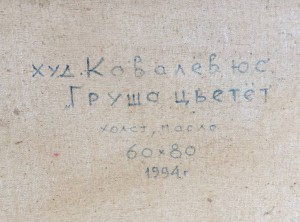 худ. Ковалёв Ю.С.
Груша цветёт
холст, масло
60×80
1994г